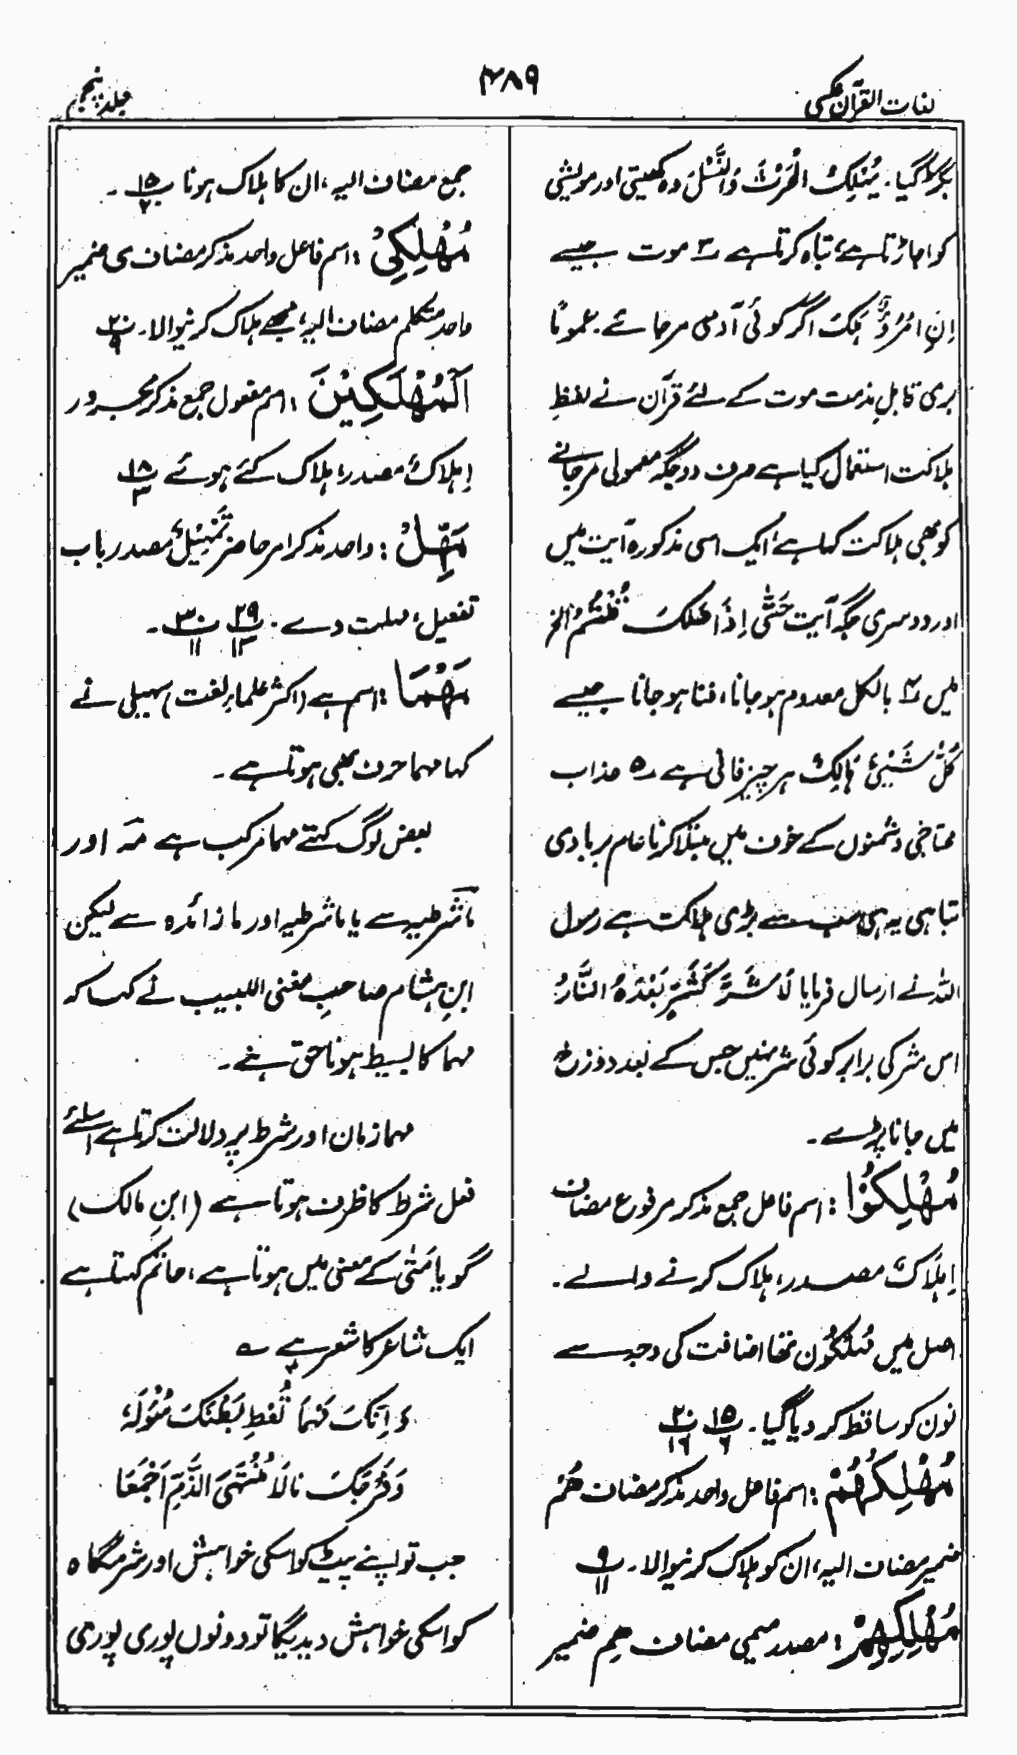 لغات القرآن عکسی
۴۸۹
جلد پنجم
بگڑ گیا۔ یُہْلِکُ الْحَرْثَ وَالنَّسْلَ وہ کھیتی اور مویشی
کو اجاڑتا ہے، تباہ کرتا ہے ۳ موت جیسے
اِنِ امْرُؤٌ ہَلَکَ اگر کوئی آدمی مرجائے۔ عموماً
بری قابلِ مذمت موت کے لئے قرآن نے لفظِ
ہلاکت استعمال کیا ہے صرف دو جگہ معمولی مرجانے
کو بھی ہلاکت کہا ہے، ایک اسی مذکورہ آیت میں
اور دوسری جگہ آیت حَتّٰی اِذَا ھَلَکَ قُلْتُمْ الخ
میں ۴ بالکل معدوم ہوجانا، فنا ہوجانا جیسے
کُلُّ شَیْئٍ ہَالِکٌ ہر چیز فانی ہے ۵ عذاب
محتاجی دشمنوں کے خوف میں مبتلا کرنا عام بربادی
تباہی یہ ہی سب سے بڑی ہلاکت ہے رسول
اللہ نے ارسال فرمایا لَا شَرَّ کَشَرٍّ بَعْدَہُ النَّارُ
اس شر کی برابر کوئی شر نہیں جس کے بعد دوزخ
میں جانا پڑے۔
مُہْلِکُوْا : اسم فاعل جمع مذکر مرفوع مضاف
اِہْلَاکٌ مصدر، ہلاک کرنے والے۔
اصل میں مُہْلِکُوْن تھا اضافت کی وجہ سے
نون کو ساقط کر دیا گیا۔ ۱۵/۶ ۲۰/۱۶
مُہْلِکُہُمْ : اسم فاعل واحد مذکر مضاف ھُمْ
ضمیر مضاف الیہ، ان کو ہلاک کرنیوالا۔ ۹/۱۱
مَہْلِکِہِمْ : مصدر میمی مضاف ھِم ضمیر
جمع مضاف الیہ، ان کا ہلاک ہونا ۱۵/۲۰۔
مُہْلِکِیْ : اسم فاعل واحد مذکر مضاف ی ضمیر
واحد متکلم مضاف الیہ، مجھے ہلاک کرنیوالا۔ ۲۰/۹
اَلْمُہْلَکِیْنَ : اسم مفعول جمع مذکر مجرور
اِہلاکٌ مصدر، ہلاک کئے ہوئے ۱۸/۳
مَہِّلْ : واحد مذکر امر حاضر تَمْہِیْلٌ مصدر باب
تفعیل، مہلت دے۔ ۲۹/۱۳ ۳۰/۱۱۔
مَہْمَا : اسم ہے (اکثر علماءِ لغت) سہیلی نے
کہا مہما حرف بھی ہوتا ہے۔
بعض لوگ کہتے مہما مرکب ہے مَہ اور
مَا شرطیہ سے یا ما شرطیہ اور ما زائدہ سے لیکن
ابنِ ہشام صاحبِ مغنی اللبیب نے کہا کہ
مہما کا بسیط ہونا حق ہے۔
مہما زمان اور شرط پر دلالت کرتا ہے اسلئے
فعل شرط کا ظرف ہوتا ہے (ابنِ مالک)
گویا مَتٰی کے معنی میں ہوتا ہے، حاتم کہتا ہے
ایک شاعر کا شعر ہے ؎
وَ اِنَّکَ مَہْمَا تُعْطِ بَطْنَکَ سُؤْلَہٗ
وَفَرْجَکَ نَالَا مُنْتَہَی الذَّمِّ اَجْمَعَا
جب تو اپنے پیٹ کو اسکی خواہش اور شرمگاہ
کو اسکی خواہش دیدیگا تو دونوں پوری پوری